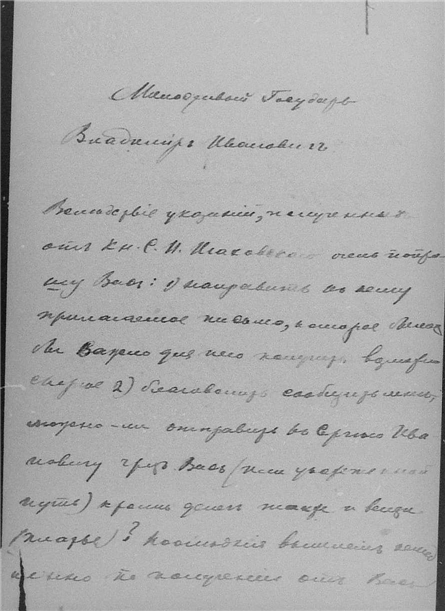 Милостивый Государь
Владимiръ Ивановичъ.
Вследствiе указанiй, полученныхъ
отъ Кн. С. И. Шаховского очень попро-
шу Васъ: 1) направить къ нему
прилагаемое письмо, которое было
бы важно для него получить возможно
скорее 2) благоволить сообщить мне,
можно-ли отправить къ Сергею Ива
новичу чрезъ Васъ (или указанный
путь) кроме денегъ также и вещи
(платье)? Последнiя вышлемъ
по полученiи отъ Васъ